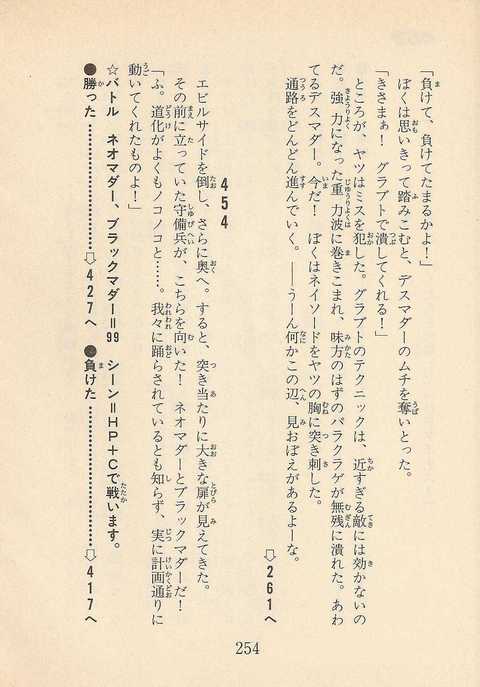 「負けて、負けてたまるかよ！」
ぼくは思いきって踏みこむと、デスマダーのムチを奪いとった。
「きさまぁ！　グラブトで潰してくれる！」
ところが、ヤツはミスを犯した。グラブトのテクニックは、近すぎる敵には効かないの
だ。強力になった重力波に巻きこまれ、味方のはずのバラクラゲが無残に潰れた。あわ
てるデスマダー。今だ！　ぼくはネイソードをヤツの胸に突き刺した。
通路をどんどん進んでいく。――うーん何かこの辺、見おぼえがあるよーな。
⇨261へ
454
エビルサイドを倒し、さらに奥へ。すると、突き当たりに大きな扉が見えてきた。
その前に立っていた守備兵が、こちらを向いた！　ネオマダーとブラックマダーだ！
「ふ。道化がよくもノコノコと……。我々に踊らされているとも知らず、実に計画通りに
動いてくれたものよ！」
☆バトル　ネオマダー、ブラックマダー＝99　シーン＝HP＋Cで戦います。
●勝った………………⇨427へ　●負けた………………⇨417へ
254